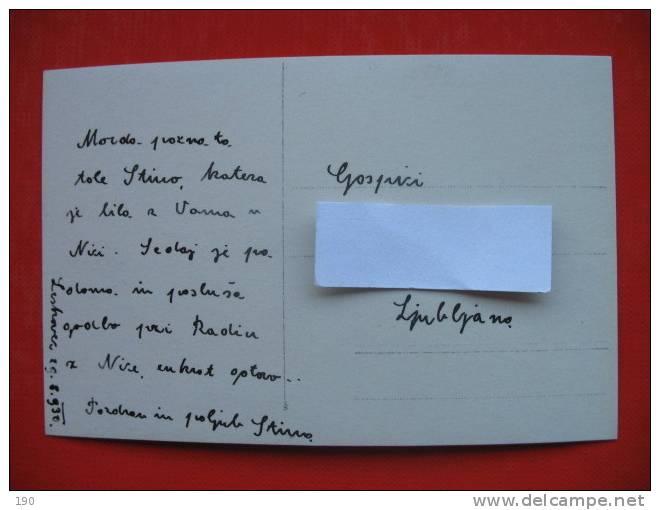 Morda pozna ta
tole Stino, katera
je bila z Vama v
Nici. Sedaj je po
doma in posluša
godbo pri Radiu
z Nice, enkrat gotovo..
Pozdrav in poljub Stina.
8.930.
Gospici
Ljubljana
190
www.delcampe.net